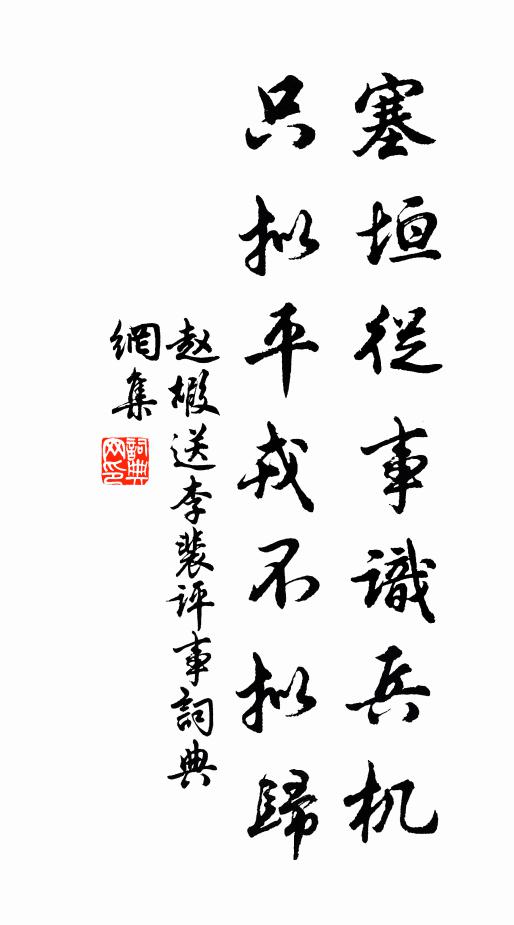 塞垣從事識兵机
只拟平戎不拟歸
赵嘏送李裴评事詞典
網集
詞典网印